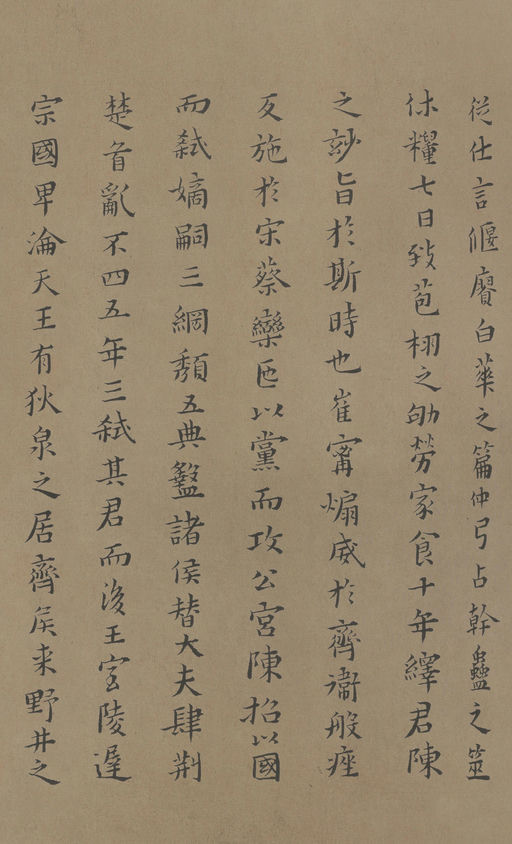 從仕言偃賡白華之篇仲弓占幹蠱之筮
休糧七日致苞栩之劬勞家食十年繹君陳
之玅旨於斯時也崔甯煽威於齊衞般痤
反施於宋蔡欒叵以黨而攻公宮陳招以國
而弑嫡嗣三綱頽五典盭諸侯替大夫肆荆
楚首亂不四五年三弑其君而後王室陵遟
宗國卑淪天王有狄泉之居齊侯来野井之